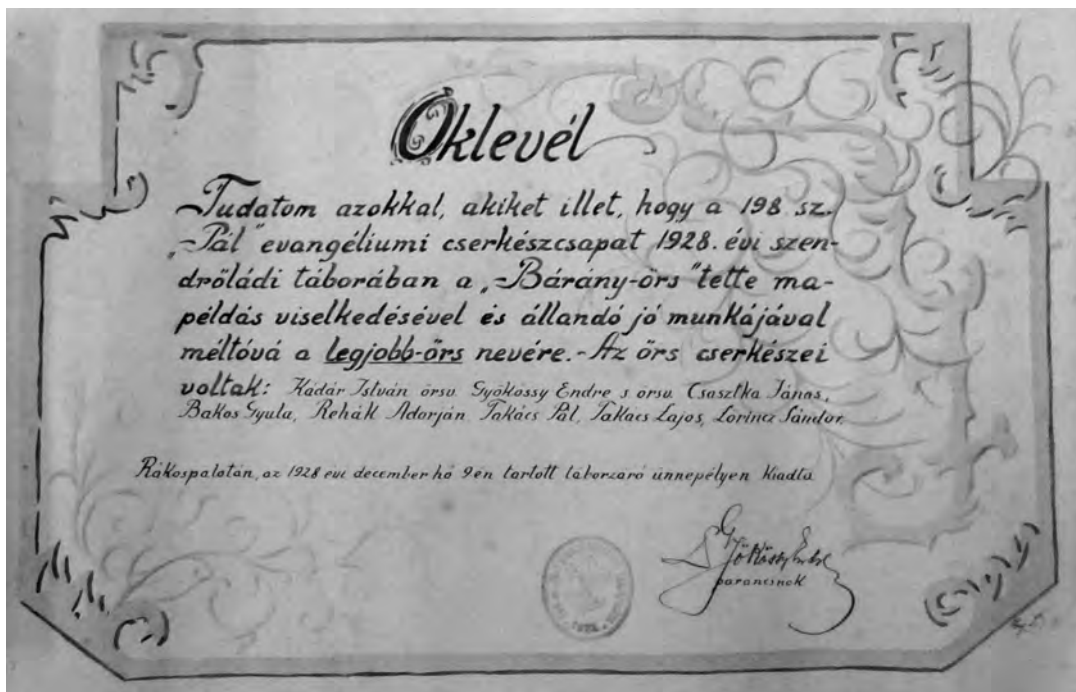 Oklevél
Tudatom azokkal, akiket illet, hogy a 198 sz.
„Pál” evangéliumi cserkészcsapat 1928. évi szen-
drőládi táborában a „Bárány-őrs” tette ma-
példás viselkedésével és állandó jó munkájával
méltóvá a legjobb-őrs nevére. - Az őrs cserkészei
voltak: Kádár István örsv. Gyökössy Endre s örsv. Csasztka János,
Bakos Gyula, Rehák Adorján. Takács Pál, Takács Lajos, Lorincz Sándor.
Rákospalotán, az 1928 évi december hó 9-én tartott táborzáró ünnepélyen kiadta
Gyökössy Endre
parancsnok